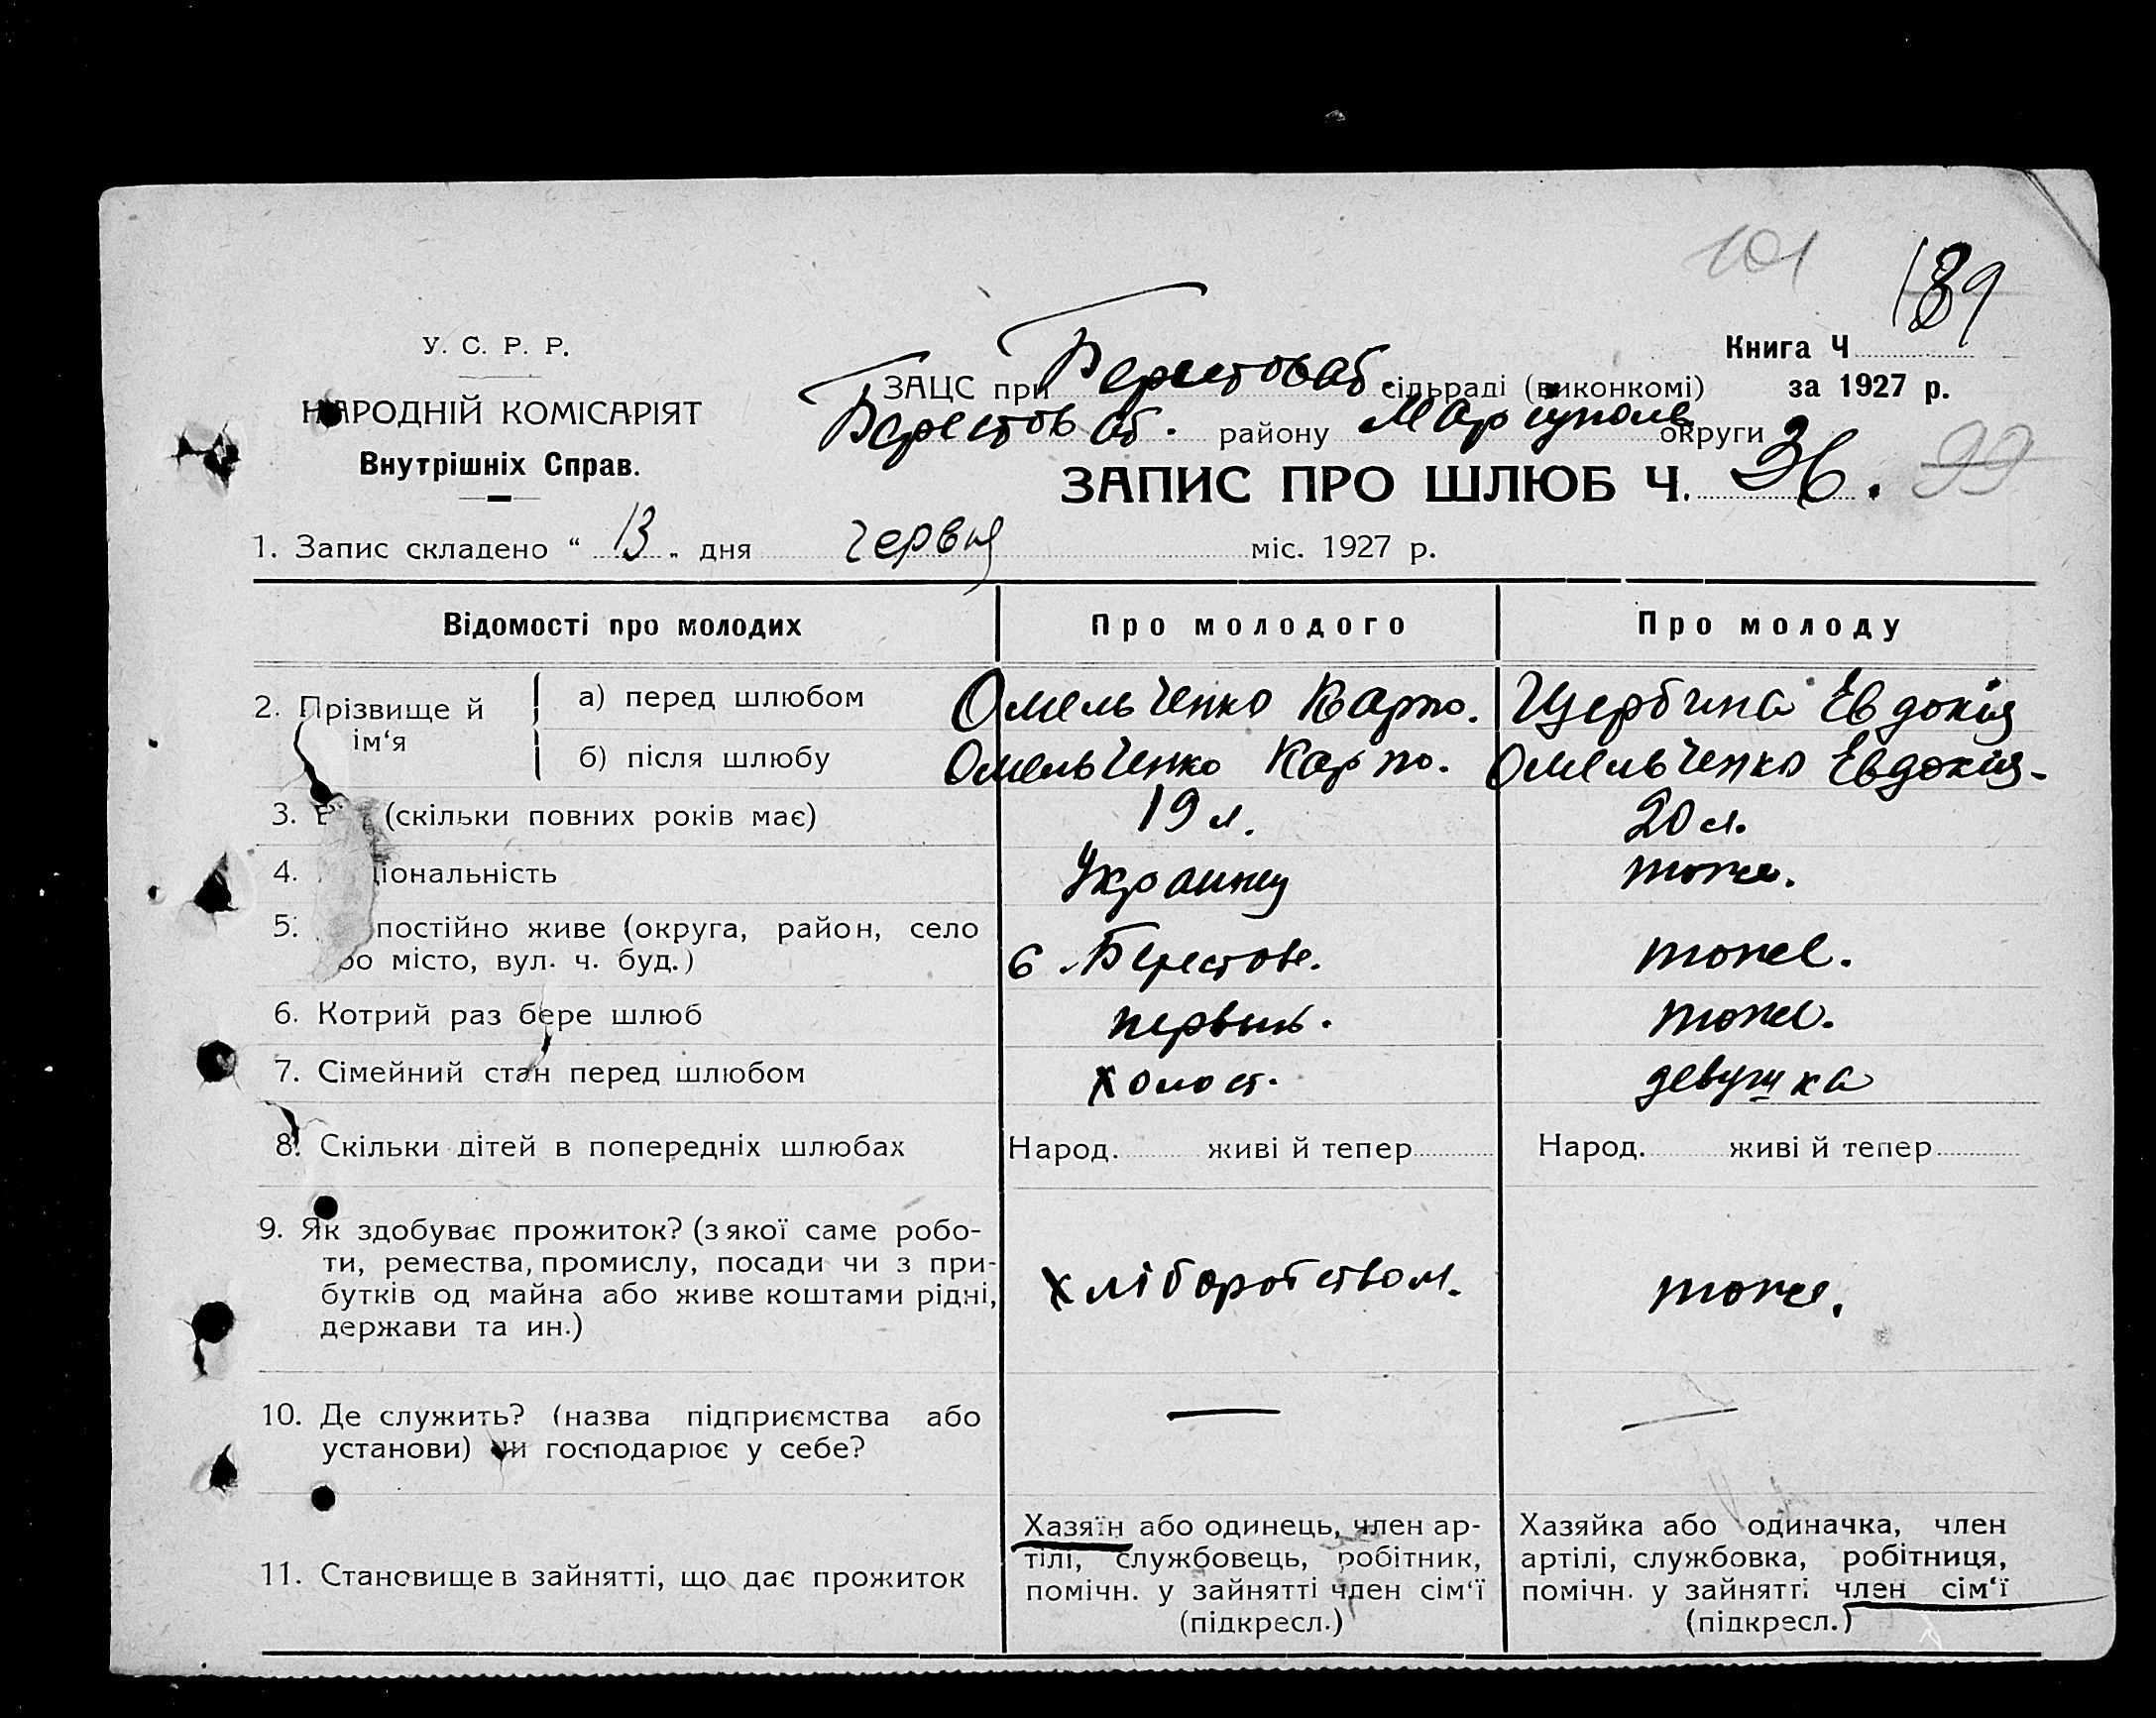 101
189
У. С. Р. Р.
НАРОДНІЙ КОМІСАРІЯТ
Внутрішніх Справ.
Книга Ч
ЗАЦС при Берестоваб. сільраді (виконкомі) за 1927 р.
Берестоваб. району Маріуполь округи
ЗАПИС ПРО ШЛЮБ Ч. 36. 99
1. Запис складено “ 13 „ дня червня міс. 1927 р.
Відомості про молодих Про молодого Про молоду
2. Прізвище й ім‘я
а) перед шлюбом Омельченко Карпо. Щербина Евдокія
б) після шлюбу Омельченко Карпо. Омельченко Евдокия-
3. (скільки повних років має) 19 л. 20 л.
4. ціональність Украинец тоже.
5. постійно живе (округа, район, село
бо місто, вул. ч. буд.) с. Берестове. тоже.
6. Котрий раз бере шлюб первый. тоже.
7. Сімейний стан перед шлюбом холост. девушка
8. Скільки дітей в попередніх шлюбах Народ. живі й тепер Народ. живі й тепер
9. Як здобуває прожиток? (з якої саме робо-
ти, ремества, промислу, посади чи з при-
бутків од майна або живе коштами рідні,
держави та ин.)
хліборобством. тоже.
10. Де служить? (назва підприємства або
установи) чи господарює у себе?
— —
11. Становище в зайнятті, що дає прожиток
Хазяїн або одинець, член ар-
тілі, службовець, робітник,
помічн. у зайнятті член сім‘ї
(підкресл.)
Хазяйка або одиначка, член
артілі, службовка, робітниця,
помічн. у зайнятті член сім‘ї
(підкресл.)